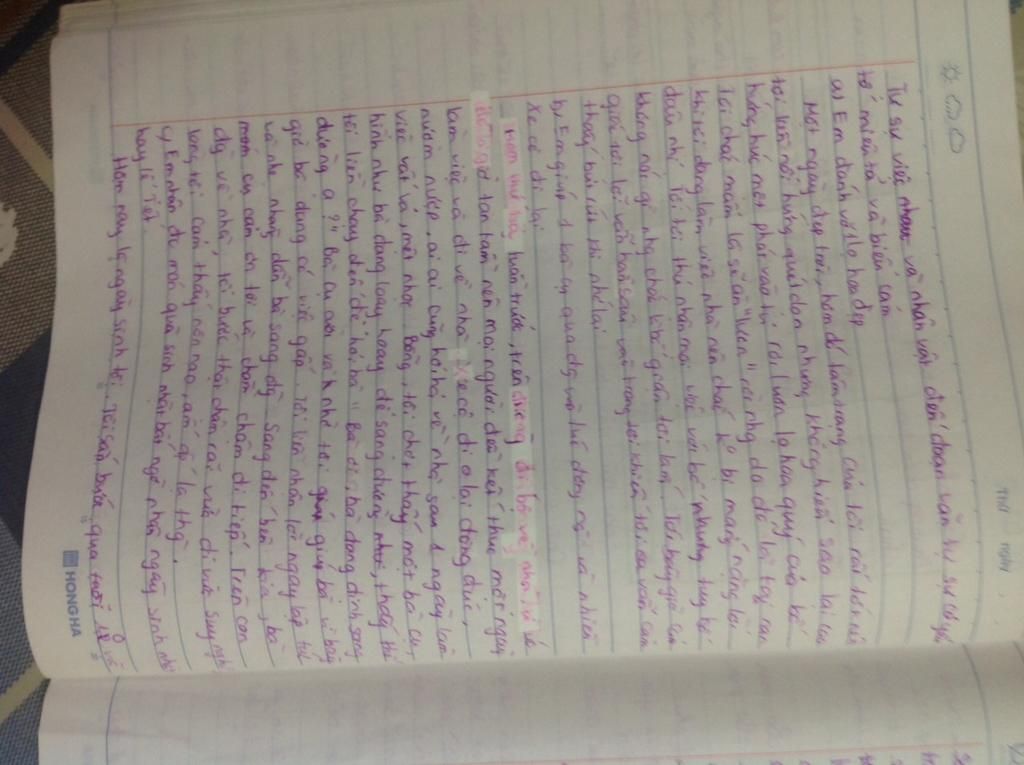 THỨ NGÀY
Từ sự việc và nhân vật đến đoạn văn tự sự có yếu
tố miêu tả và biểu cảm
a) Em đánh vỡ 1 lọ hoa đẹp
Một ngày đẹp trời, hôm đó tâm trạng của tôi rất
tôi liền nổi hứng quét dọn nhưng không hiểu sao lại
hứng húc mông phải vào tủ, rơi luôn lọ hoa quý của bố
Tôi chắc mẩm là sẽ ăn "lươn" rồi nhg do đó là tai nạn
khi tôi đang làm việc nhà nên chắc k bị mắng nặng lời
đâu nhỉ. Tôi thú nhận mọi việc với bố nhưng tuy bố
không nói gì nhg chắc k bố giận tôi lắm. Tới bây giờ
giọt tôi lỗi vẫn trong tôi khiến tôi
thấy bứt rứt khi nhớ lại
b) Em giúp 1 bà cụ qua đg vào lúc đông người và nhiều
xe cộ đi lại
Hôm thứ bảy tuần trước, trên đường đi bộ về nhà
đó là giờ tan tầm nên mọi người đều kết thúc một ngày
làm việc và đi về nhà. Xe cộ đi lại đông đúc,
nườm nượp, ai ai cũng hối hả về nhà sau 1 ngày làm
việc vất vả, mệt nhọc. Bỗng, tôi chợt thấy một bà cụ,
hình như bà đang loay hoay để sang đường thì, thấy thế
tôi liền chạy đến để hỏi bà " Bà ơi, bà đang định sang
đường ạ?" Bà cụ cười và nhờ tôi giúp bà vì bây
giờ bà đang có việc gấp. Tôi liền nhận lời ngay lập tức
và nhẹ nhàng dẫn bà sang đg. Sang đến bên kia, bà
móm cụ cảm ơn tôi và chầm chậm đi tiếp. Trên con
đg về nhà, tôi bước thật chậm rãi vừa đi vừa suy nghĩ
lòng tôi cảm thấy nôn nao, ấm áp lạ thường.
c) Em nhận đc món quà sinh nhật bất ngờ nhân ngày sinh nhật
hay lễ Tết.
Hôm nay là ngày sinh tôi. Tôi sắp bước qua tuổi
HONG HA